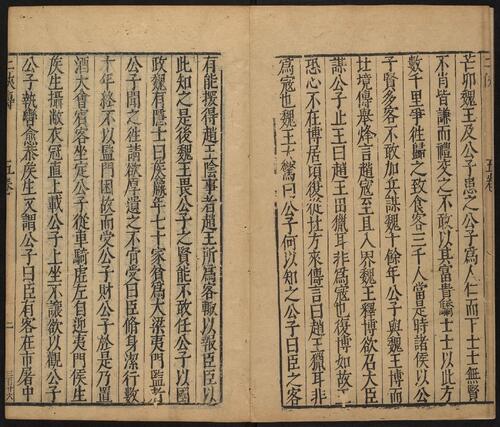 芒卯魏王及公子患之公子為人仁而下士士無賢
不肖皆謙而禮交之不敢以其富貴驕士士以此方
數千里爭徃歸之致食客三千人當是時諸侯以公
子賢多客不敢加兵謀魏十餘年公子與魏王博而
北境傳舉烽言趙寇至且入界魏王釋博欲召大臣
謀公子止王曰趙王田獵耳非為寇也復博如故王
恐心不在博居頃復從北方來傳言曰趙王獵耳非
為寇也魏王大驚曰公子何以知之公子曰臣之客
有能探得趙王陰事者趙王所為客輒以報臣臣以
此知之是後魏王畏公子之賢能不敢任公子以國
政魏有隱士曰侯嬴年七十家貧為大梁夷門監者
公子聞之徃請欲厚遺之不肯受曰臣脩身潔行數
十年終不以監門困故而受公子財公子於是乃置
酒大會賓客坐定公子從車騎虛左自迎夷門侯生
侯生攝敝衣冠直上載公子上坐不讓欲以觀公子
公子執轡愈恭侯生又謂公子曰臣有客在市屠中
二俠傳 五卷 二